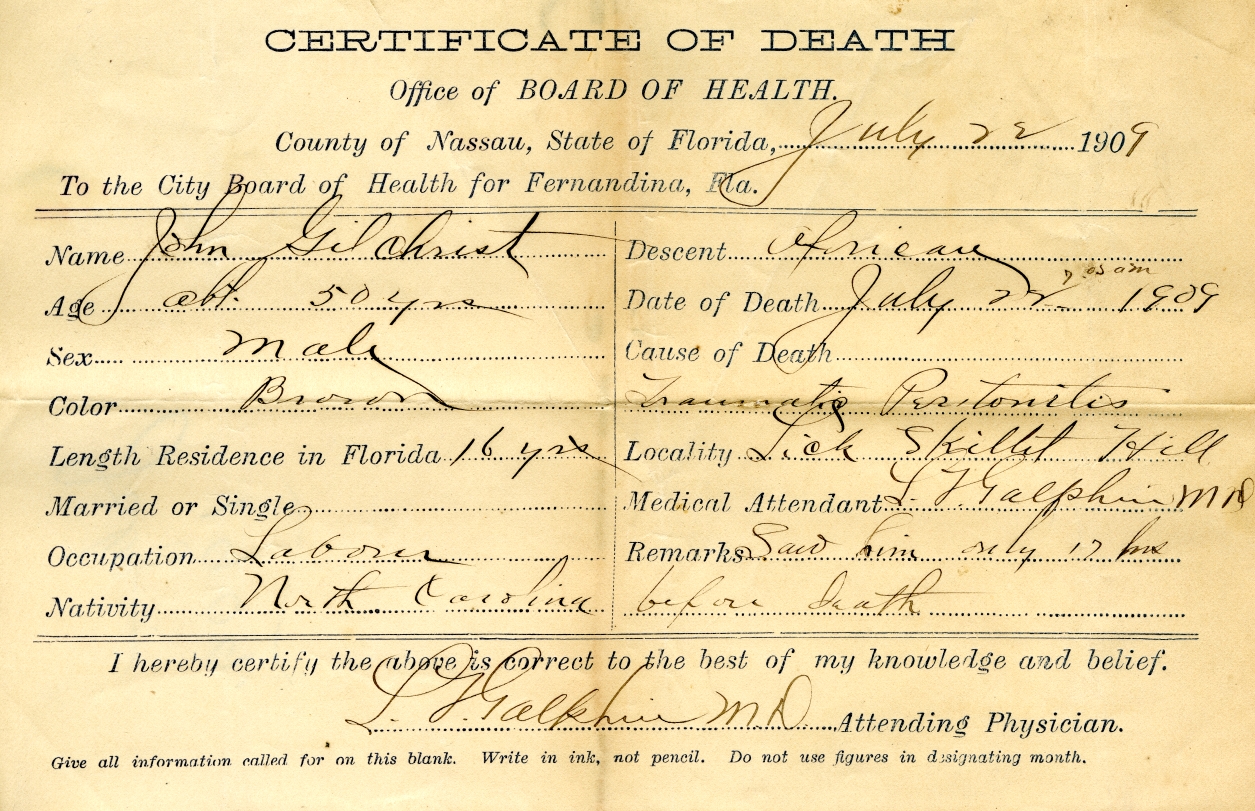 CERTIFICATE OF DEATH
Office of BOARD OF HEALTH.
County of Nassau, State of Florida, July 22 1909
To the City Board of Health for Fernandina, Fla.
Name John Gilchrist
Age abt. 50 yrs
Sex Male
Color Brown
Length Residence in Florida 16 yrs
Married or Single
Occupation Labour
Nativity North Carolina
Descent African
Date of Death July 22 1909
Cause of Death
Traumatic Peritonitis
Locality Lick Skillit Hill
Medical Attendant L. Galphin MD
Remarks Saw him only 17 hrs
before death
I hereby certify the above is correct to the best of my knowledge and belief.
L. Galphin MD Attending Physician.
Give all information called for on this blank. Write in ink, not pencil. Do not use figures in designating month.